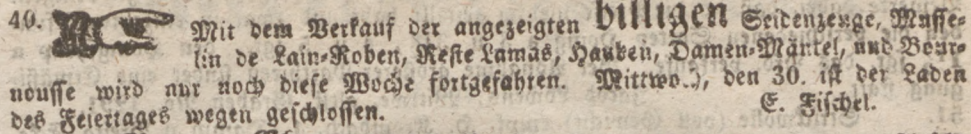 40. Mit dem Verkauf der angezeigten billigen Seidenzeuge, Musse-
lin de Lain-Roben, Reste Lamas, Hauben, Damen-Mäntel, und Bour-
nousse wird nur noch diese Woche fortgefahren. Mittwoch, den 30. ist der Laden
des Feiertages wegen geschlossen. E. Fischel.